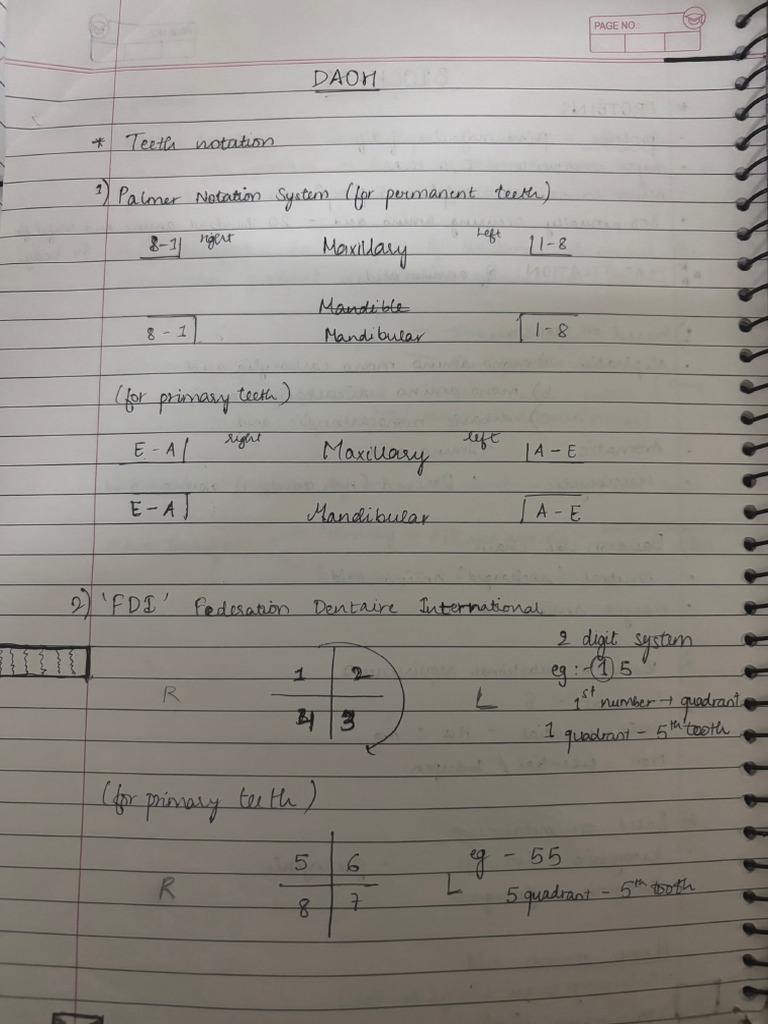 PAGE NO.:
DAOH
* Teeth notation
1) Palmer Notation System (for permanent teeth)
8-1| right Maxillary Left |1-8
Mandible
8 - 1| Mandibular |1-8
(for primary teeth)
E - A| right Maxillary left |A - E
E - A| Mandibular |A - E
2) 'FDI' Federation Dentaire International
2 digit system
1 2 eg :- 1 5
R L 1st number → quadrant
4 3
1 quadrant - 5th tooth
(for primary teeth)
5 6 eg - 55
R L 5 quadrant - 5th tooth
8 7